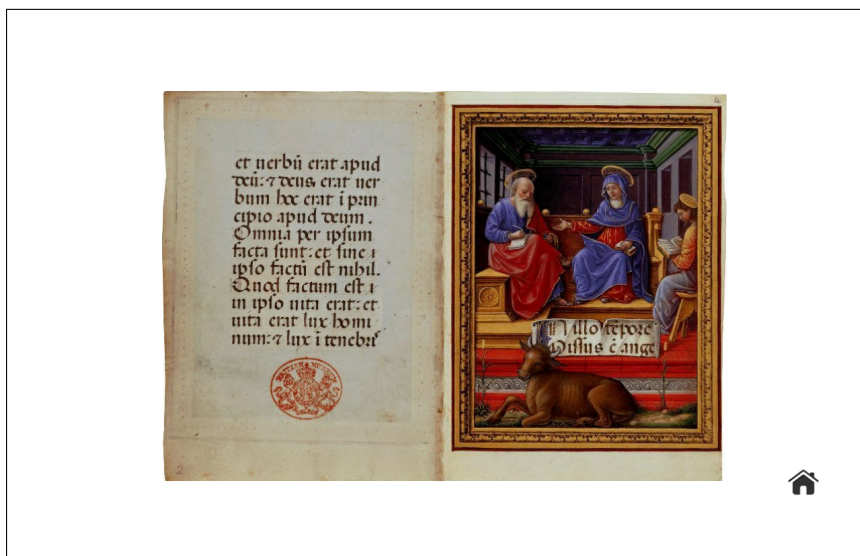 et uerbū erat apud
deū: ⁊ deus erat uer
bum hoc erat ī prin
cipio apud deum.
Omnia per ipsum
facta sunt: et sine i
ipso factū est nihil.
Quod factum est i
in ipso uita erat: et
uita erat lux homi
num: ⁊ lux ī tenebris
BRITISH MUSEUM
2
N illo tēpore
Missus ē ange